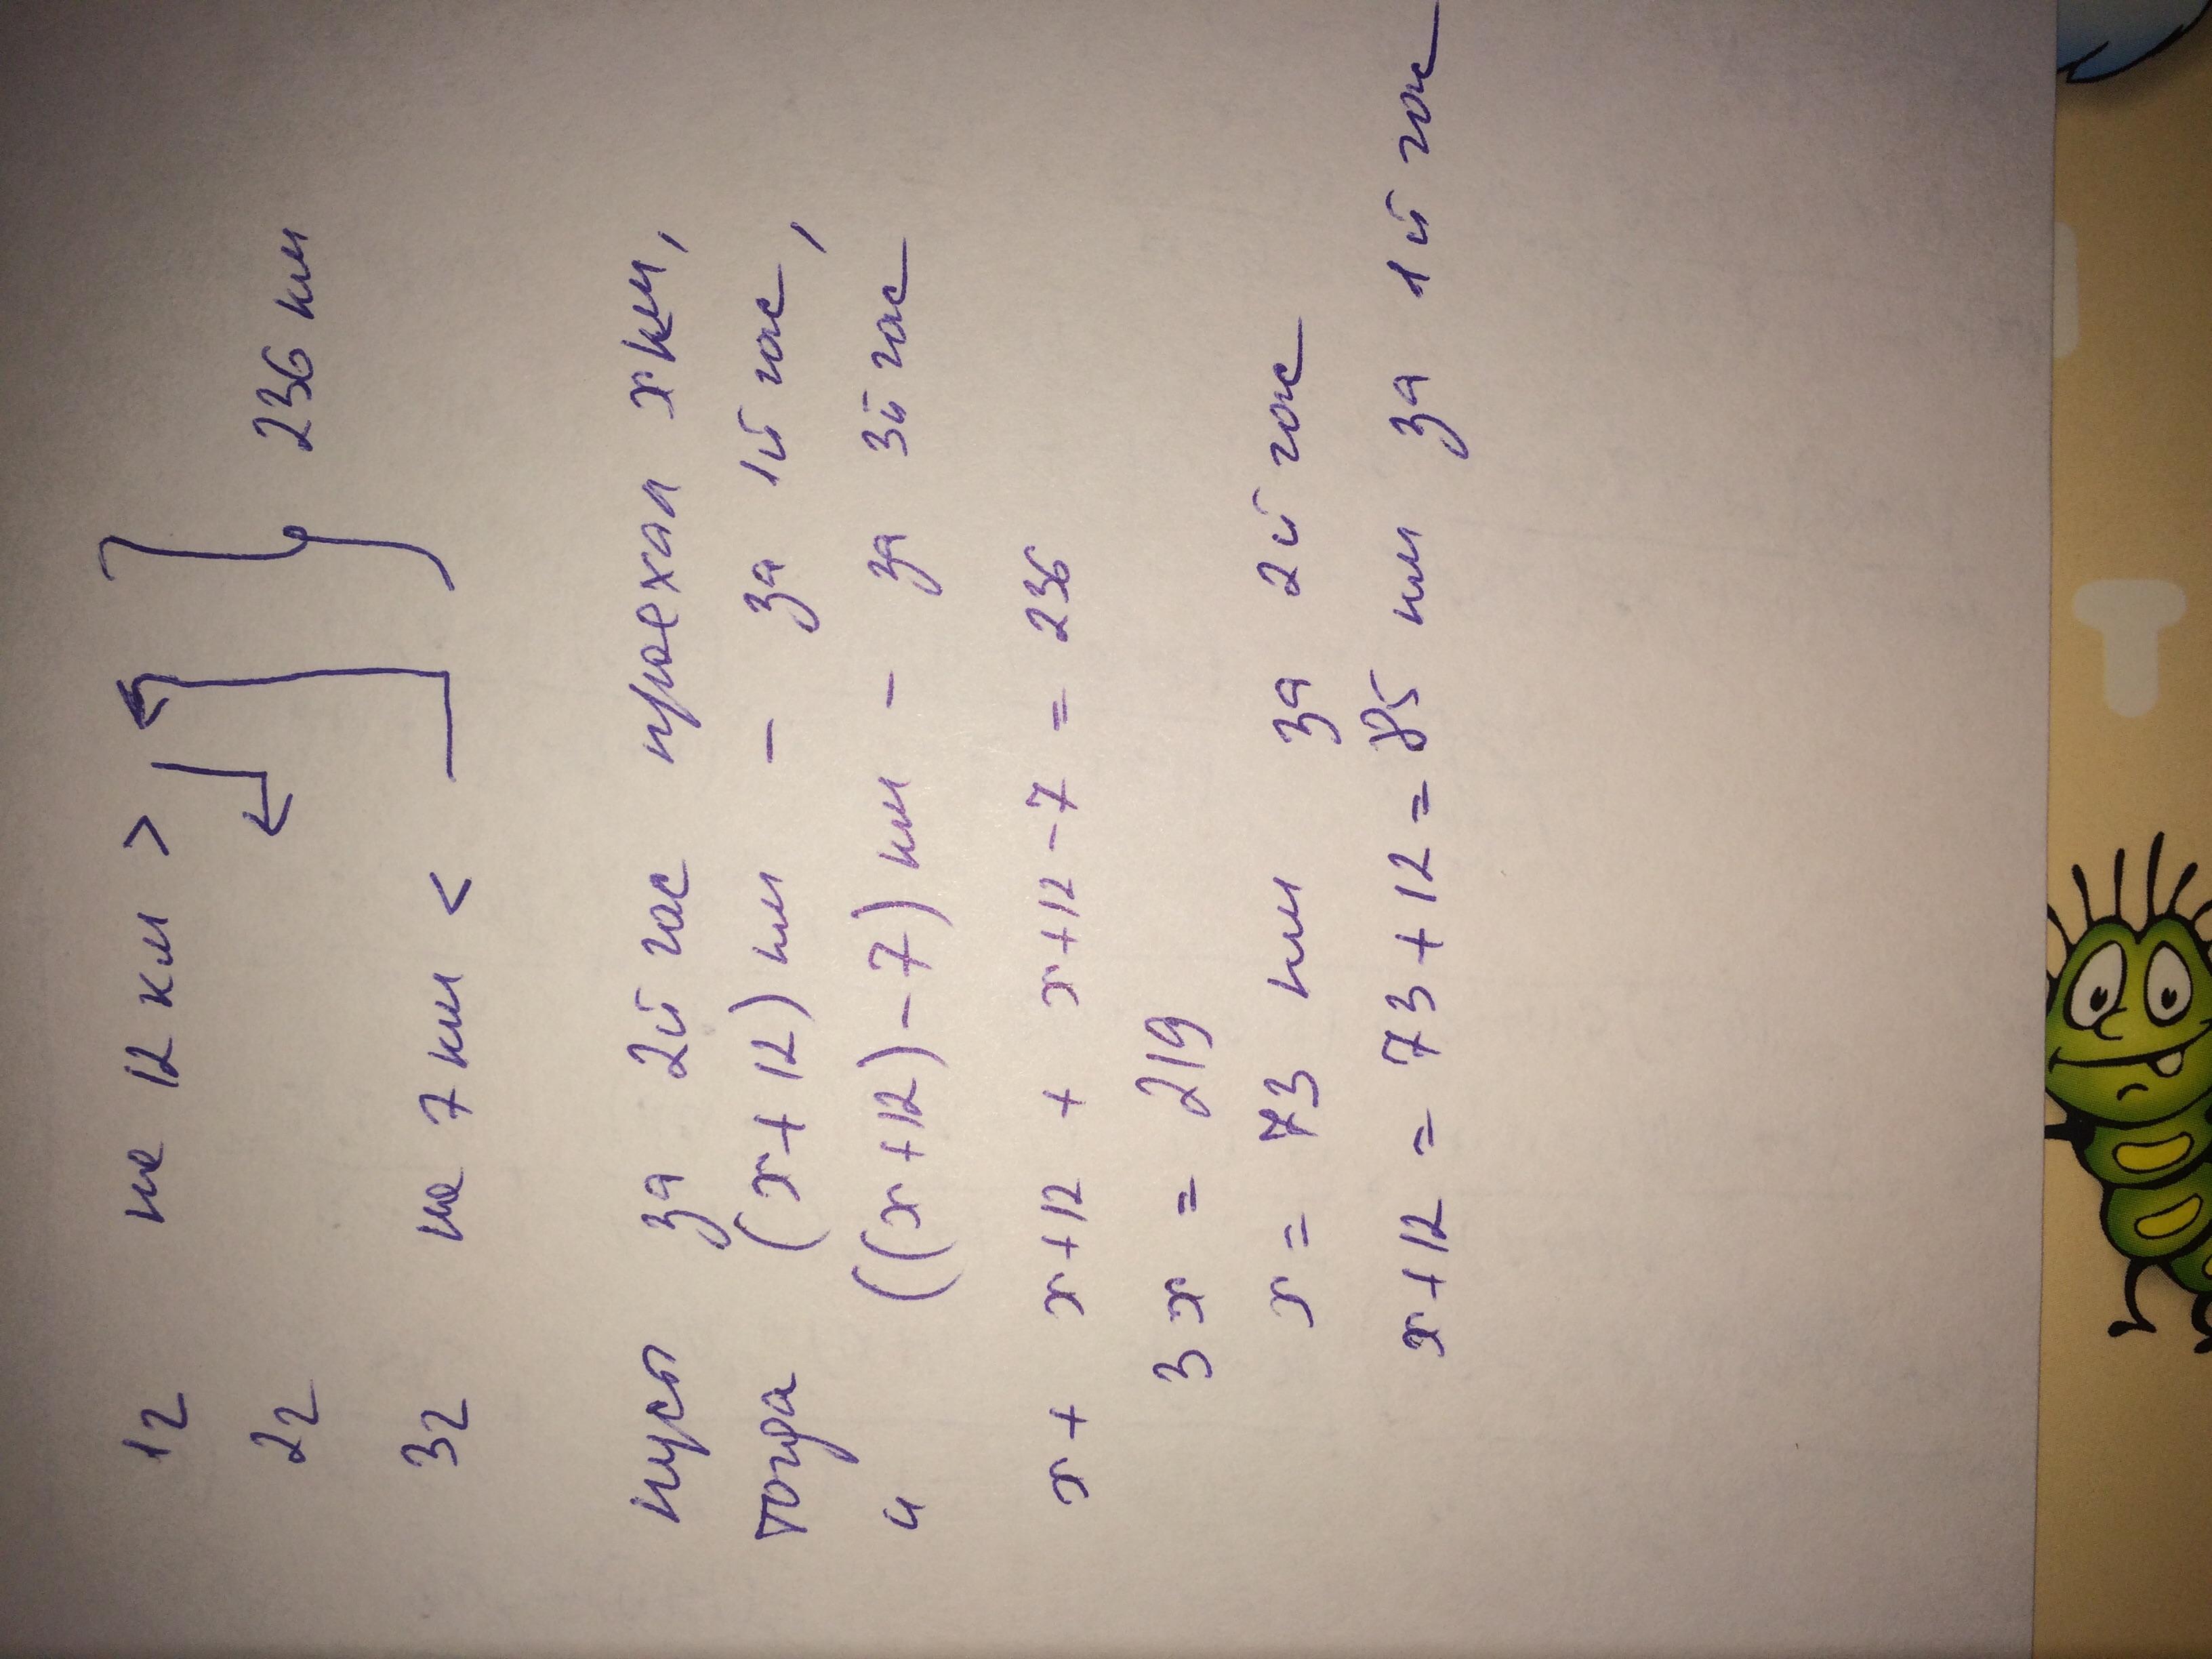 1г на 12 км >
2г 236 км
3г на 7 км <
пусть за 2й час проехал x км,
тогда (x+12) км - за 1й час,
и ((x+12)-7) км - за 3й час
x + x+12 + x+12-7 = 236
3x = 219
x = 73 км за 2й час
x+12 = 73+12 = 85 км за 1й час
T